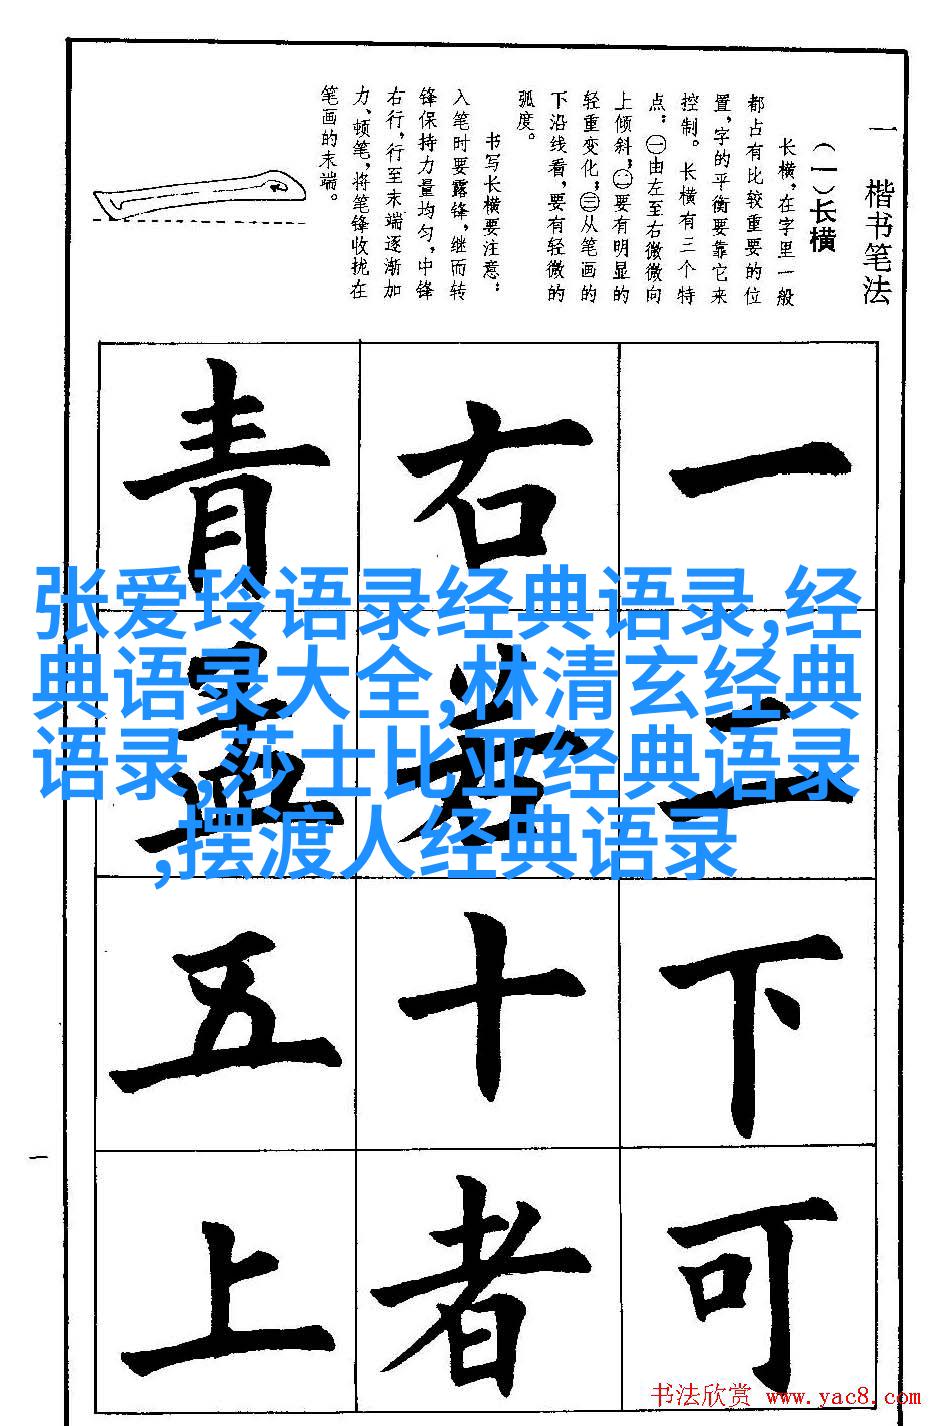 一 楷书笔法
(一)长横
长横,在字里一般
都占有比较重要的位
置,字的平衡要靠它来
控制。长横有三个特
点:㊀由左至右微微向
上倾斜;㊁要有明显的
轻重变化;㊂从笔画的
下沿线看,要有轻微的
弧度。
书写长横要注意:
入笔时要露锋,继而转
锋保持力量均匀,中锋
右行,行至末端逐渐加
力、顿笔,将笔锋收拢在
笔画的末端。
一
二
下
可
右
若
十
者
青
五
上
张爱玲语录经典语录,经
典语录大全,林清玄经典
语录,莎士比亚经典语录
,摆渡人经典语录
一
书法欣赏 www.yac8.com